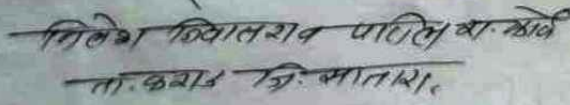 निलेश निवासराव पाटील रा. कार्वे
ता. कराड जि. सातारा.